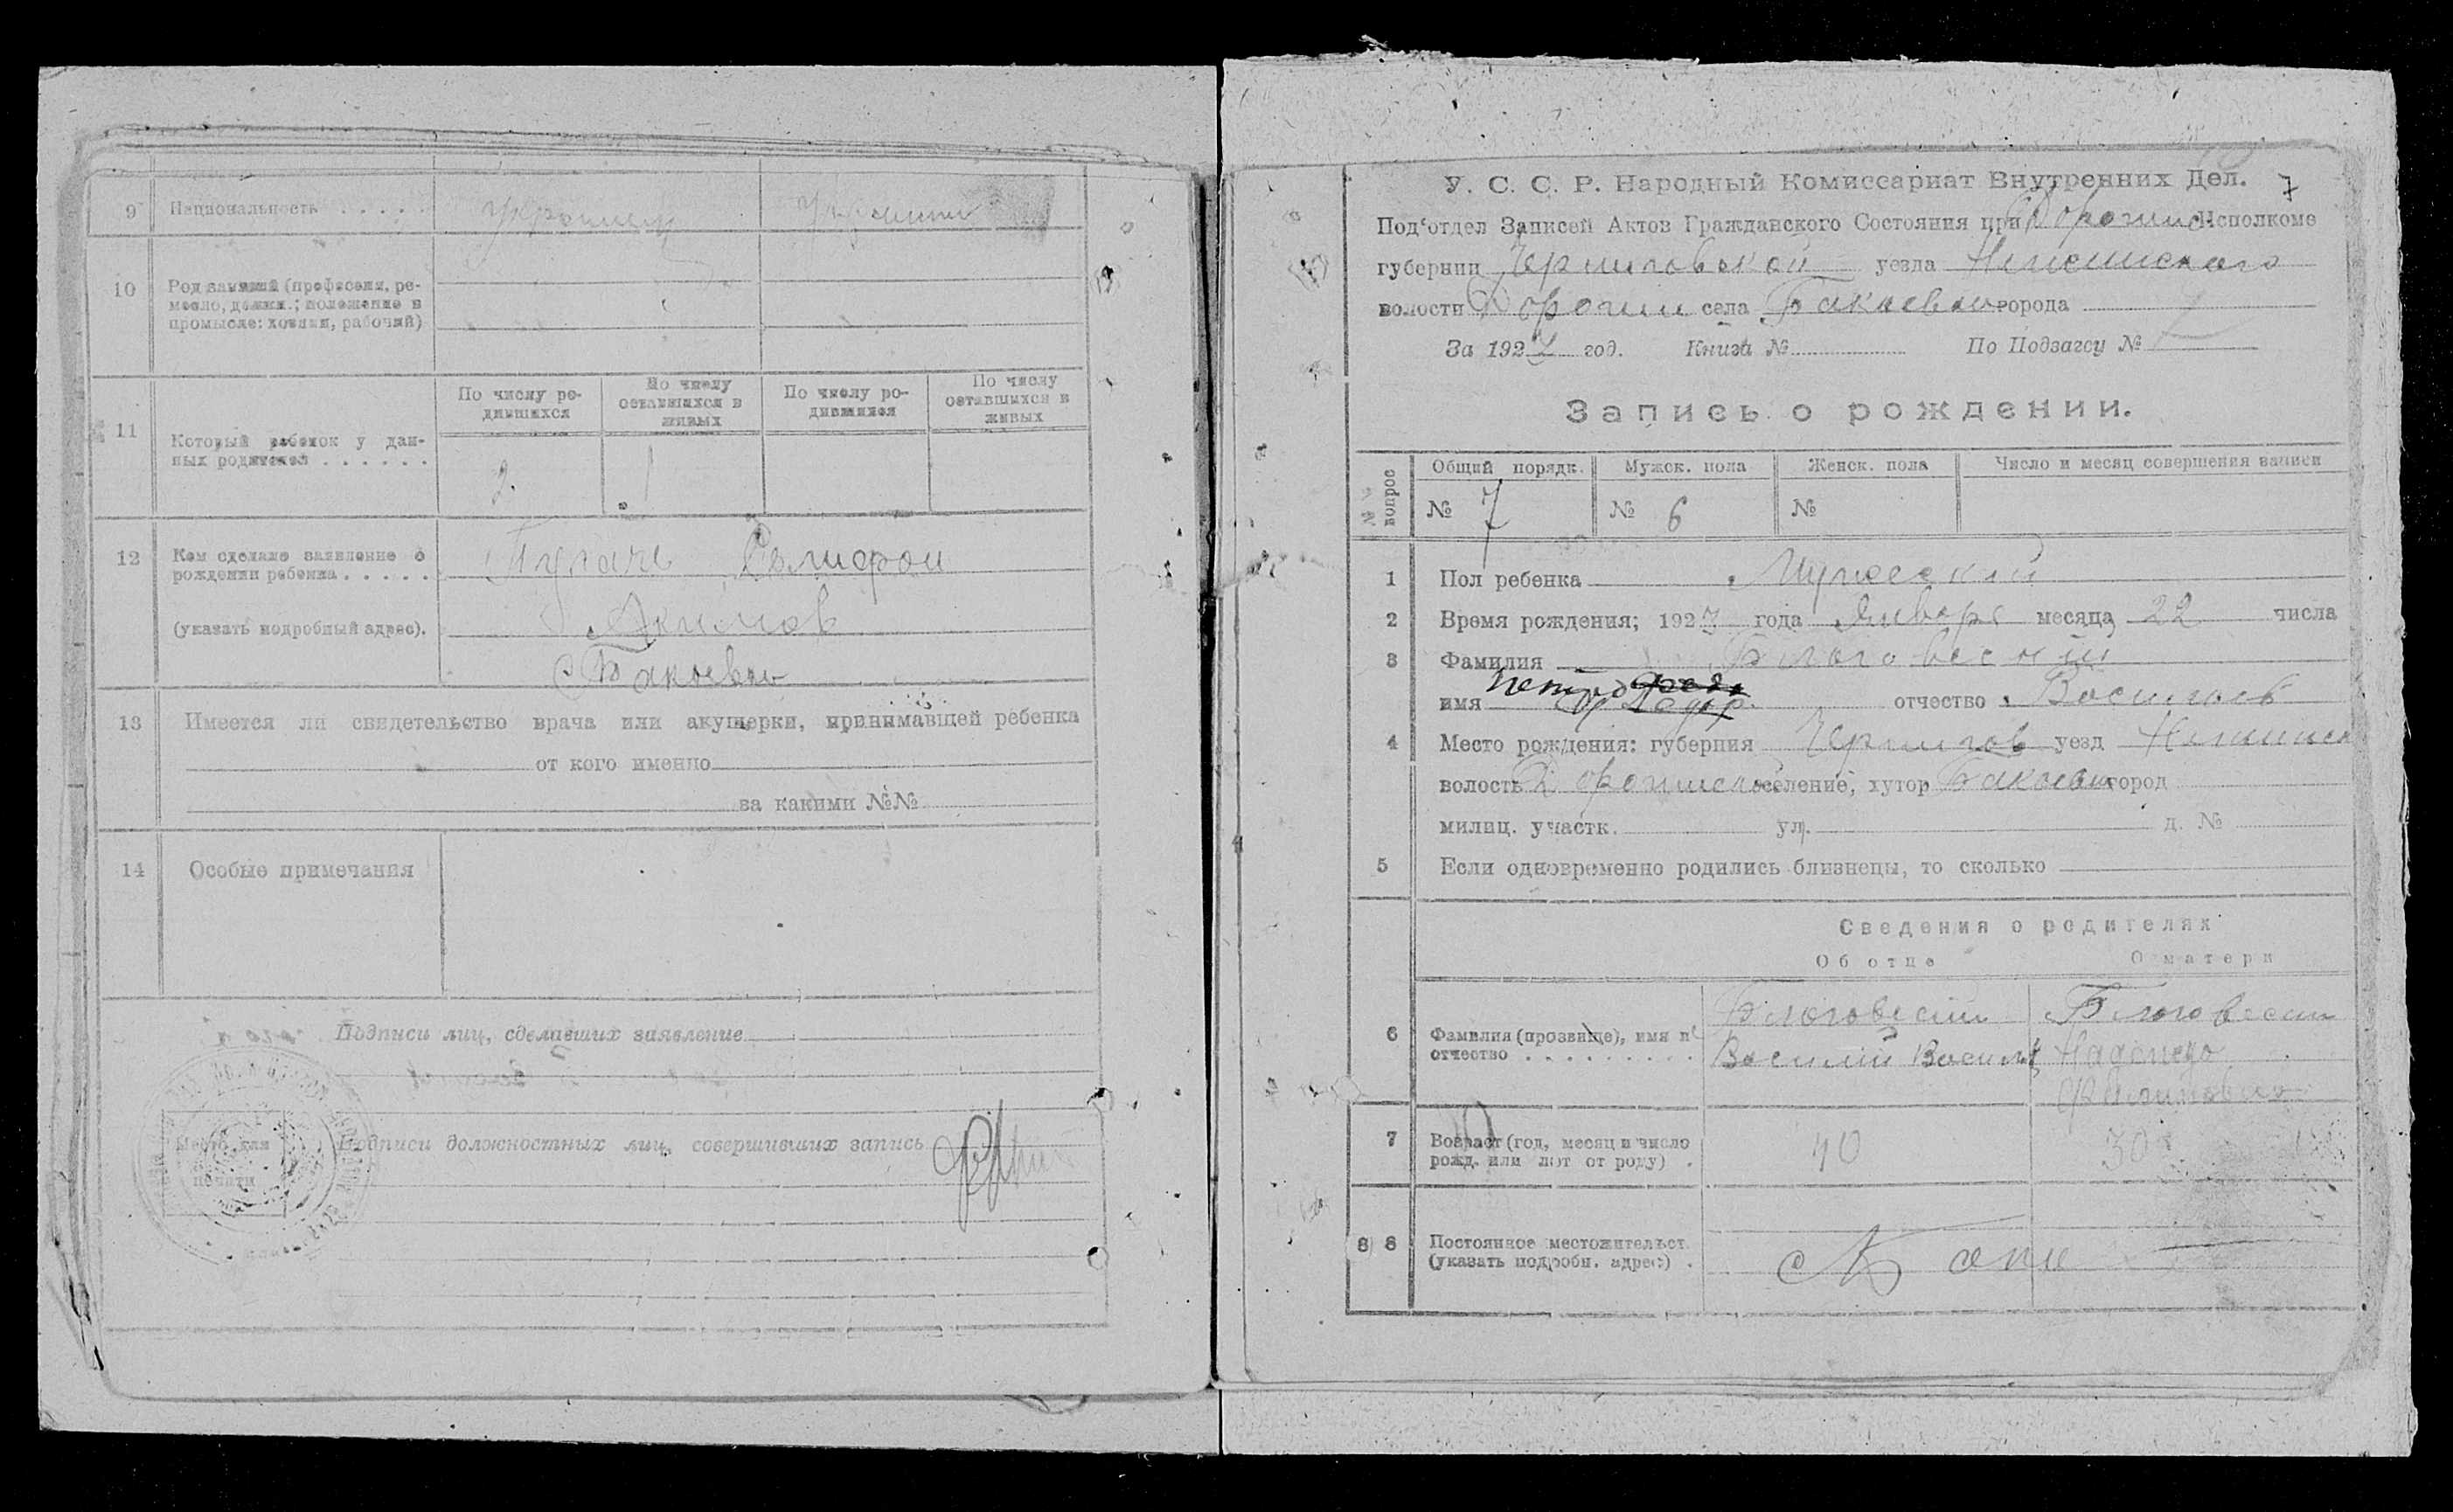 9 Национальность . . . . . украинец украинка
10 Род занятий (профессия, ре-
месло, должн.; положение в
промысле: хозяин, рабочий)
По числу ро-
дившихся
По числу
оставшихся в
живых
По числу ро-
дившихся
По числу
оставшихся в
живых
11 Который ребенок у дан-
ных родителей . . . . . . 2. 1
12 Кем сделано заявление о
рождении ребенка . . . . . Пугачь
(указать подробный адрес). Акимов
с Бакаевка
13 Имеется ли свидетельство врача или акушерки, принимавшей ребенка
от кого именно
за какими №№
14 Особые примечания
Подписи лиц, сделавших заявление
Место для
печати
Подписи должностных лиц, совершивших запись
У. С. С. Р. Народный Комиссариат Внутренних Дел. 7
Под'отдел Записей Актов Гражданского Состояния при Дорогинс. Исполкоме
губернии Черниговской уезда Неженского
волости Дорогин села Бакаевки города
За 1927 год. Книга № По Подзагсу №
Запись о рождении.
№№ вопрос
Общий порядк. Мужск. пола Женск. пола Число и месяц совершения записи
№ 7 № 6 №
1 Пол ребенка Мужеский
2 Время рождения; 192 года Январе месяца 22 числа
3 Фамилия
имя отчество Васильев
4 Место рождения: губерния Чернигов уезд Неженск
волость Дорогинская селение, хутор Бакаевка город
милиц. участк. ул. д. №
5 Если одновременно родились близнецы, то сколько
Сведения о родителях
Об отце О матери
6 Фамилия (прозвище), имя и
отчество . . . . . . . . . Василий Василь
7 Возраст (год, месяц и число
рожд. или лет от роду) . 40 30
8 8 Постоянное местожительст.
(указать подробн. адрес) .